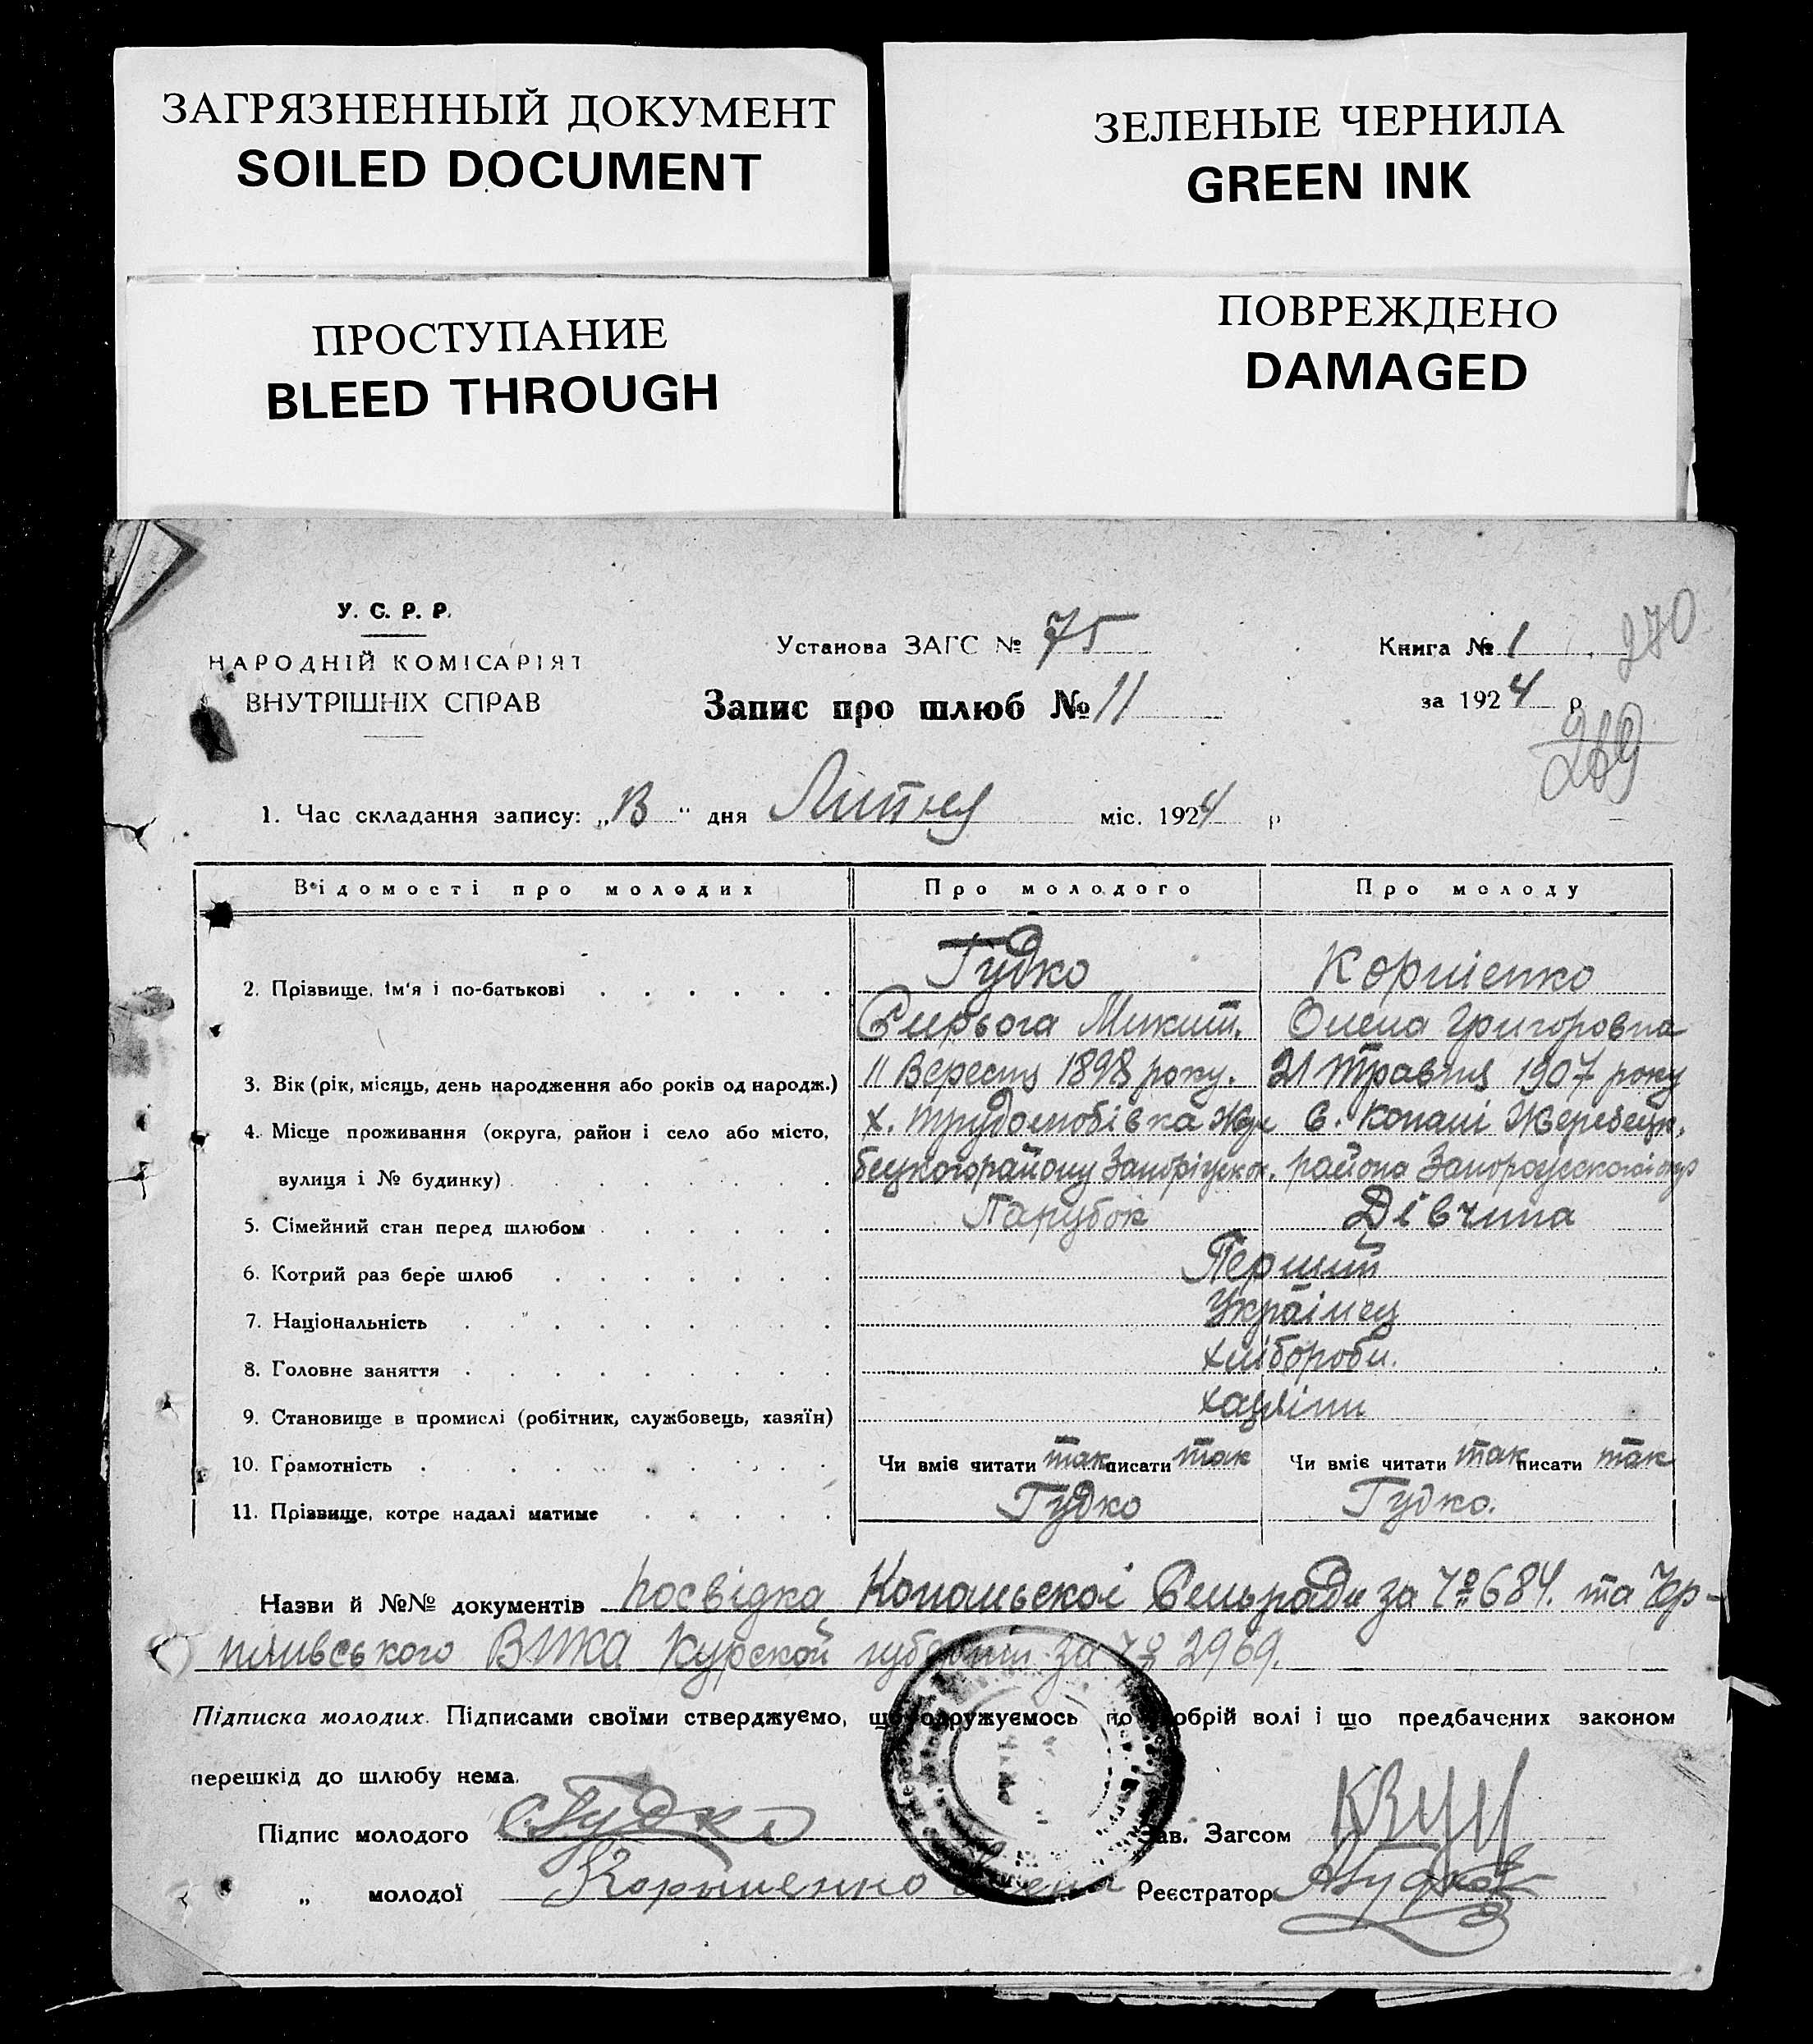 ЗАГРЯЗНЕННЫЙ ДОКУМЕНТ
SOILED DOCUMENT
ЗЕЛЕНЫЕ ЧЕРНИЛА
GREEN INK
ПРОСТУПАНИЕ
BLEED THROUGH
ПОВРЕЖДЕНО
DAMAGED
У. С. Р. Р.
НАРОДНІЙ КОМІСАРІЯТ
ВНУТРІШНІХ СПРАВ
Установа ЗАГС № 75
Запис про шлюб № 11
Книга № 1
за 1924 р
270
269
1. Час складання запису: „ " дня Липня міс. 1924 р
Відомості про молодих Про молодого Про молоду
Гудко Корнієнко
2. Прізвище, ім'я і по-батькові
Серьога Микит. Олена Григоровна
3. Вік (рік, місяць, день народження або років од народж.) 11 Вересня 1898 року. 21 Травня 1907 року
4. Місце проживання (округа, район і село або місто, х. Трудолюбівка С. Копані Жеребецк.
вулиця і № будинку) району району
5. Сімейний стан перед шлюбом Парубок Дівчина
6. Котрий раз бере шлюб Перший
7. Національність Українец
8. Головне заняття хлібороби.
9. Становище в промислі (робітник, службовець, хазяїн) хазяіни
10. Грамотність Чи вміє читати так писати так Чи вміє читати так писати так
11. Прізвище, котре надалі матиме Гудко Гудко.
Назви й №№ документів посвідка Копаньскоі Сельради за № 684. та
ВИКА Курской губернии за № 2969.
Підписка молодих. Підписами своїми стверджуємо, що одружуємось по добрій волі і що предбачених законом
перешкід до шлюбу нема.
Підпис молодого С. Гудко Зав. Загсом
„ молодої Корниенко Реєстратор